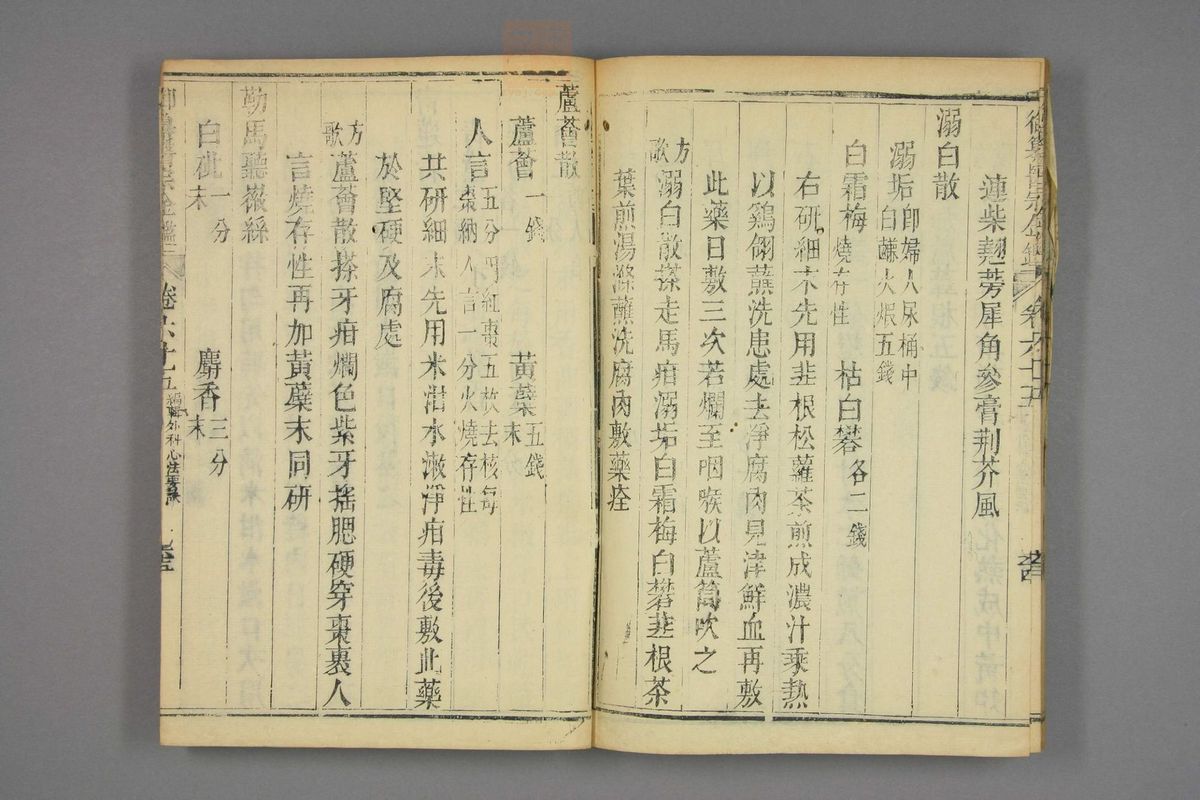 連柴翹蒡犀角參膏荆芥風
溺白散
溺垢卽婦人尿桶中白鹻火煆五錢
白霜梅燒存性 枯白礬各二錢
右研細末先用韭根松蘿茶煎成濃汁乗熱
以鷄翎蘸洗患處去淨腐肉見津鮮血再敷
此藥日敷三次若爛至咽喉以蘆筒吹之
方歌 溺白散搽走馬疳溺垢白霜梅白礬韭根茶
葉煎湯滌蘸洗腐肉敷藥痊
蘆薈散
蘆薈一錢 黄蘗末五錢
人言五分用紅棗五枚去核每棗納人言一分火燒存性
共研細末先用米泔水漱淨疳毒後敷此藥
於堅硬及腐處
方歌 蘆薈散搽牙疳爛色紫牙摇腮硬穿棗裹人
言燒存性再加黄蘗末同研
勒馬聽嶶絲
白砒末一分 麝香末三分
卷六十五 編輯外科心法要訣